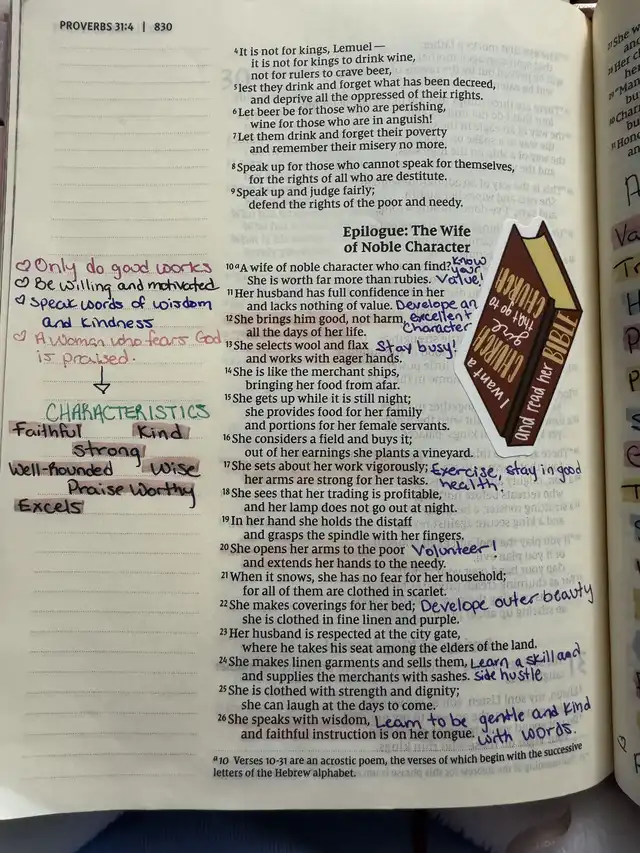 PROVERBS 31:4 | 830
4It is not for kings, Lemuel—
it is not for kings to drink wine,
not for rulers to crave beer,
5lest they drink and forget what has been decreed,
and deprive all the oppressed of their rights.
6Let beer be for those who are perishing,
wine for those who are in anguish!
7Let them drink and forget their poverty
and remember their misery no more.
8Speak up for those who cannot speak for themselves,
for the rights of all who are destitute.
9Speak up and judge fairly;
defend the rights of the poor and needy.
Epilogue: The Wife
of Noble Character
10 aA wife of noble character who can find? know your
She is worth far more than rubies. Value!
11Her husband has full confidence in her
and lacks nothing of value. Develope an
12She brings him good, not harm, excellent
all the days of her life. Character
13She selects wool and flax Stay busy!
and works with eager hands.
14She is like the merchant ships,
bringing her food from afar.
15She gets up while it is still night;
she provides food for her family
and portions for her female servants.
16She considers a field and buys it;
out of her earnings she plants a vineyard.
17She sets about her work vigorously; Exercise, stay in good
her arms are strong for her tasks. health!
18She sees that her trading is profitable,
and her lamp does not go out at night.
19In her hand she holds the distaff
and grasps the spindle with her fingers.
20She opens her arms to the poor Volunteer!
and extends her hands to the needy.
21When it snows, she has no fear for her household;
for all of them are clothed in scarlet.
22She makes coverings for her bed; Develope outer beauty
she is clothed in fine linen and purple.
23Her husband is respected at the city gate,
where he takes his seat among the elders of the land.
24She makes linen garments and sells them, Learn a skill and
and supplies the merchants with sashes. side hustle
25She is clothed with strength and dignity;
she can laugh at the days to come.
26She speaks with wisdom, Learn to be gentle and kind
and faithful instruction is on her tongue. with words.
a10 Verses 10-31 are an acrostic poem, the verses of which begin with the successive
letters of the Hebrew alphabet.
Only do good works
Be willing and motivated
Speak words of wisdom
and kindness
A woman who fears God
is praised.
CHARACTERISTICS
Faithful Kind
strong
Well-Rounded Wise
Praise Worthy
Excels
I want a
CHURCH
girl
that go to
CHURCH
and read her BIBLE